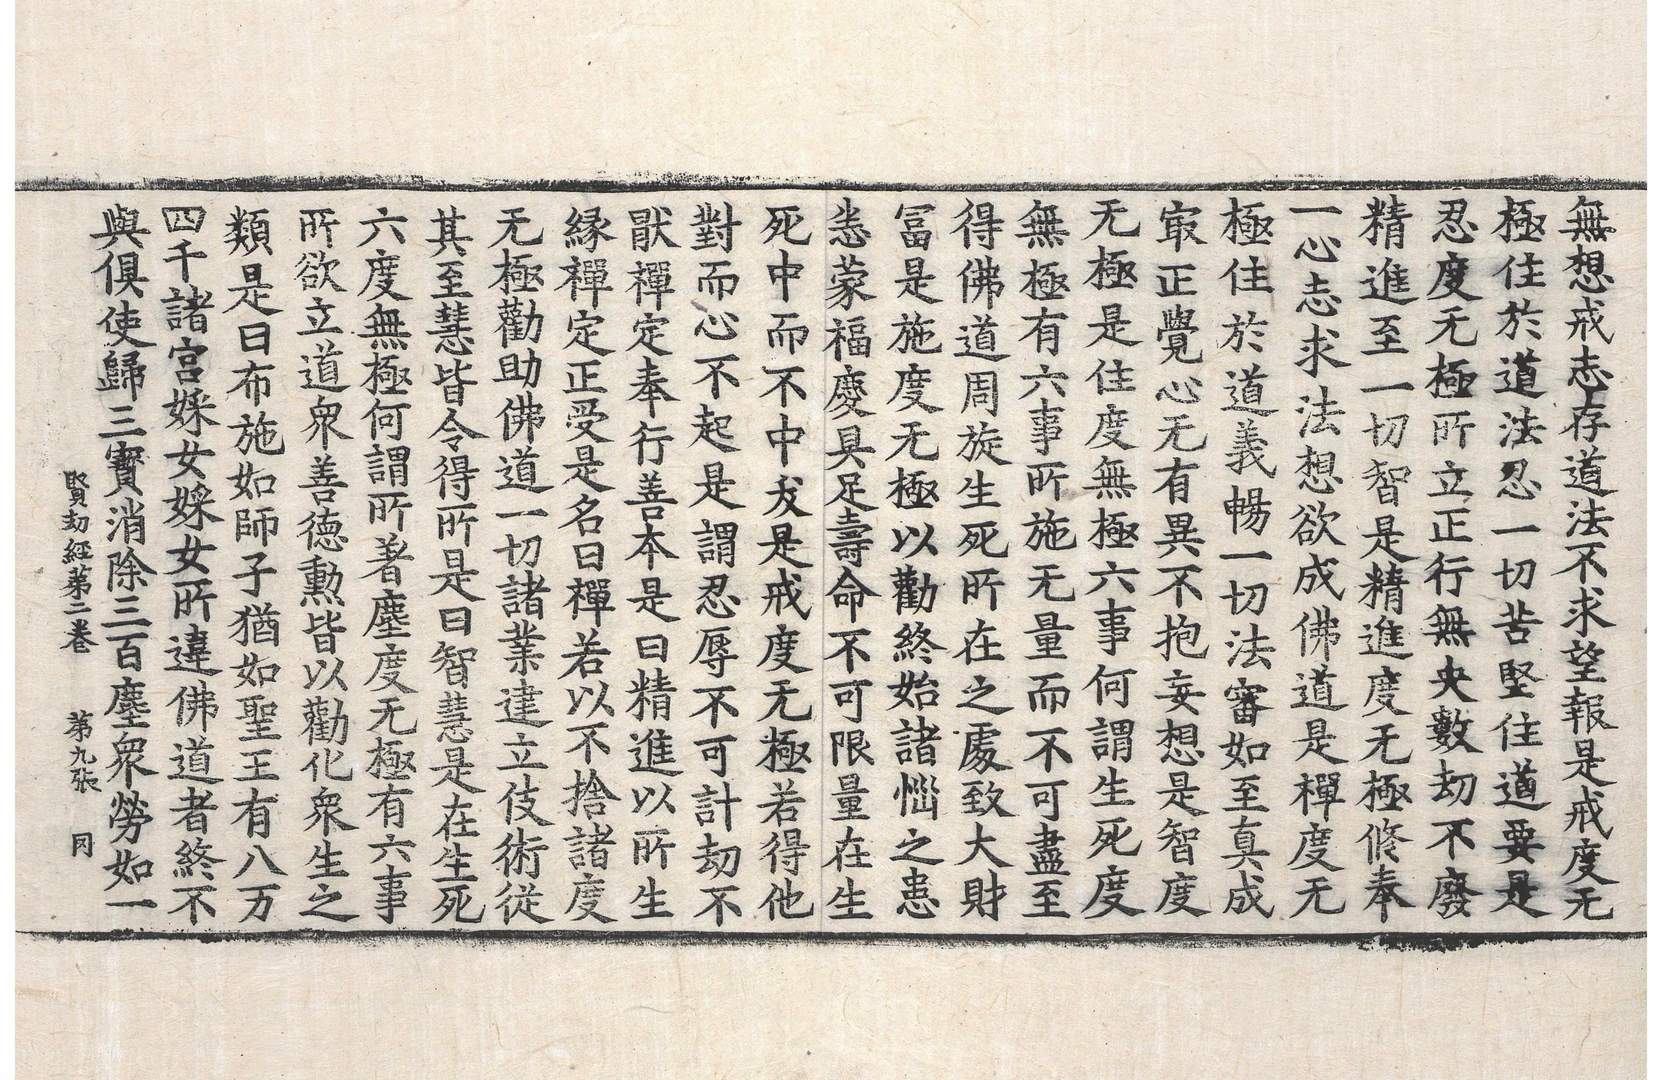 無想戒志存道法不求望報是戒度无
極住於道法忍一切苦堅住道要是
忍度无極所立正行無央數劫不廢
精進至一切智是精進度无極修奉
一心志求法想欲成佛道是禪度无
極住於道義暢一切法審如至真成
㝡正覺心无有異不抱妄想是智度
无極是住度無極六事何謂生死度
無極有六事所施无量而不可盡至
得佛道周旋生死所在之處致大財
冨是施度无極以勸終始諸惱之患
恙蒙福慶具足壽命不可限量在生
死中而不中犮是戒度无極若得他
對而心不起是謂忍辱不可計劫不
猒禪定奉行善本是曰精進以所生
縁禪定正受是名曰禪若以不捨諸度
无極勸助佛道一切諸業達立伎術従
其至慧皆令得所是曰智慧是在生死
六度無極何謂所著塵度无極有六事
所欲立道衆善德勲皆以勸化衆生之
類是曰布施如師子猶如聖王有八万
四千諸宫婇女婇女所違佛道者終不
與俱使歸三寳消除三百塵衆勞如一
賢劫經苐二卷 苐九張 冈